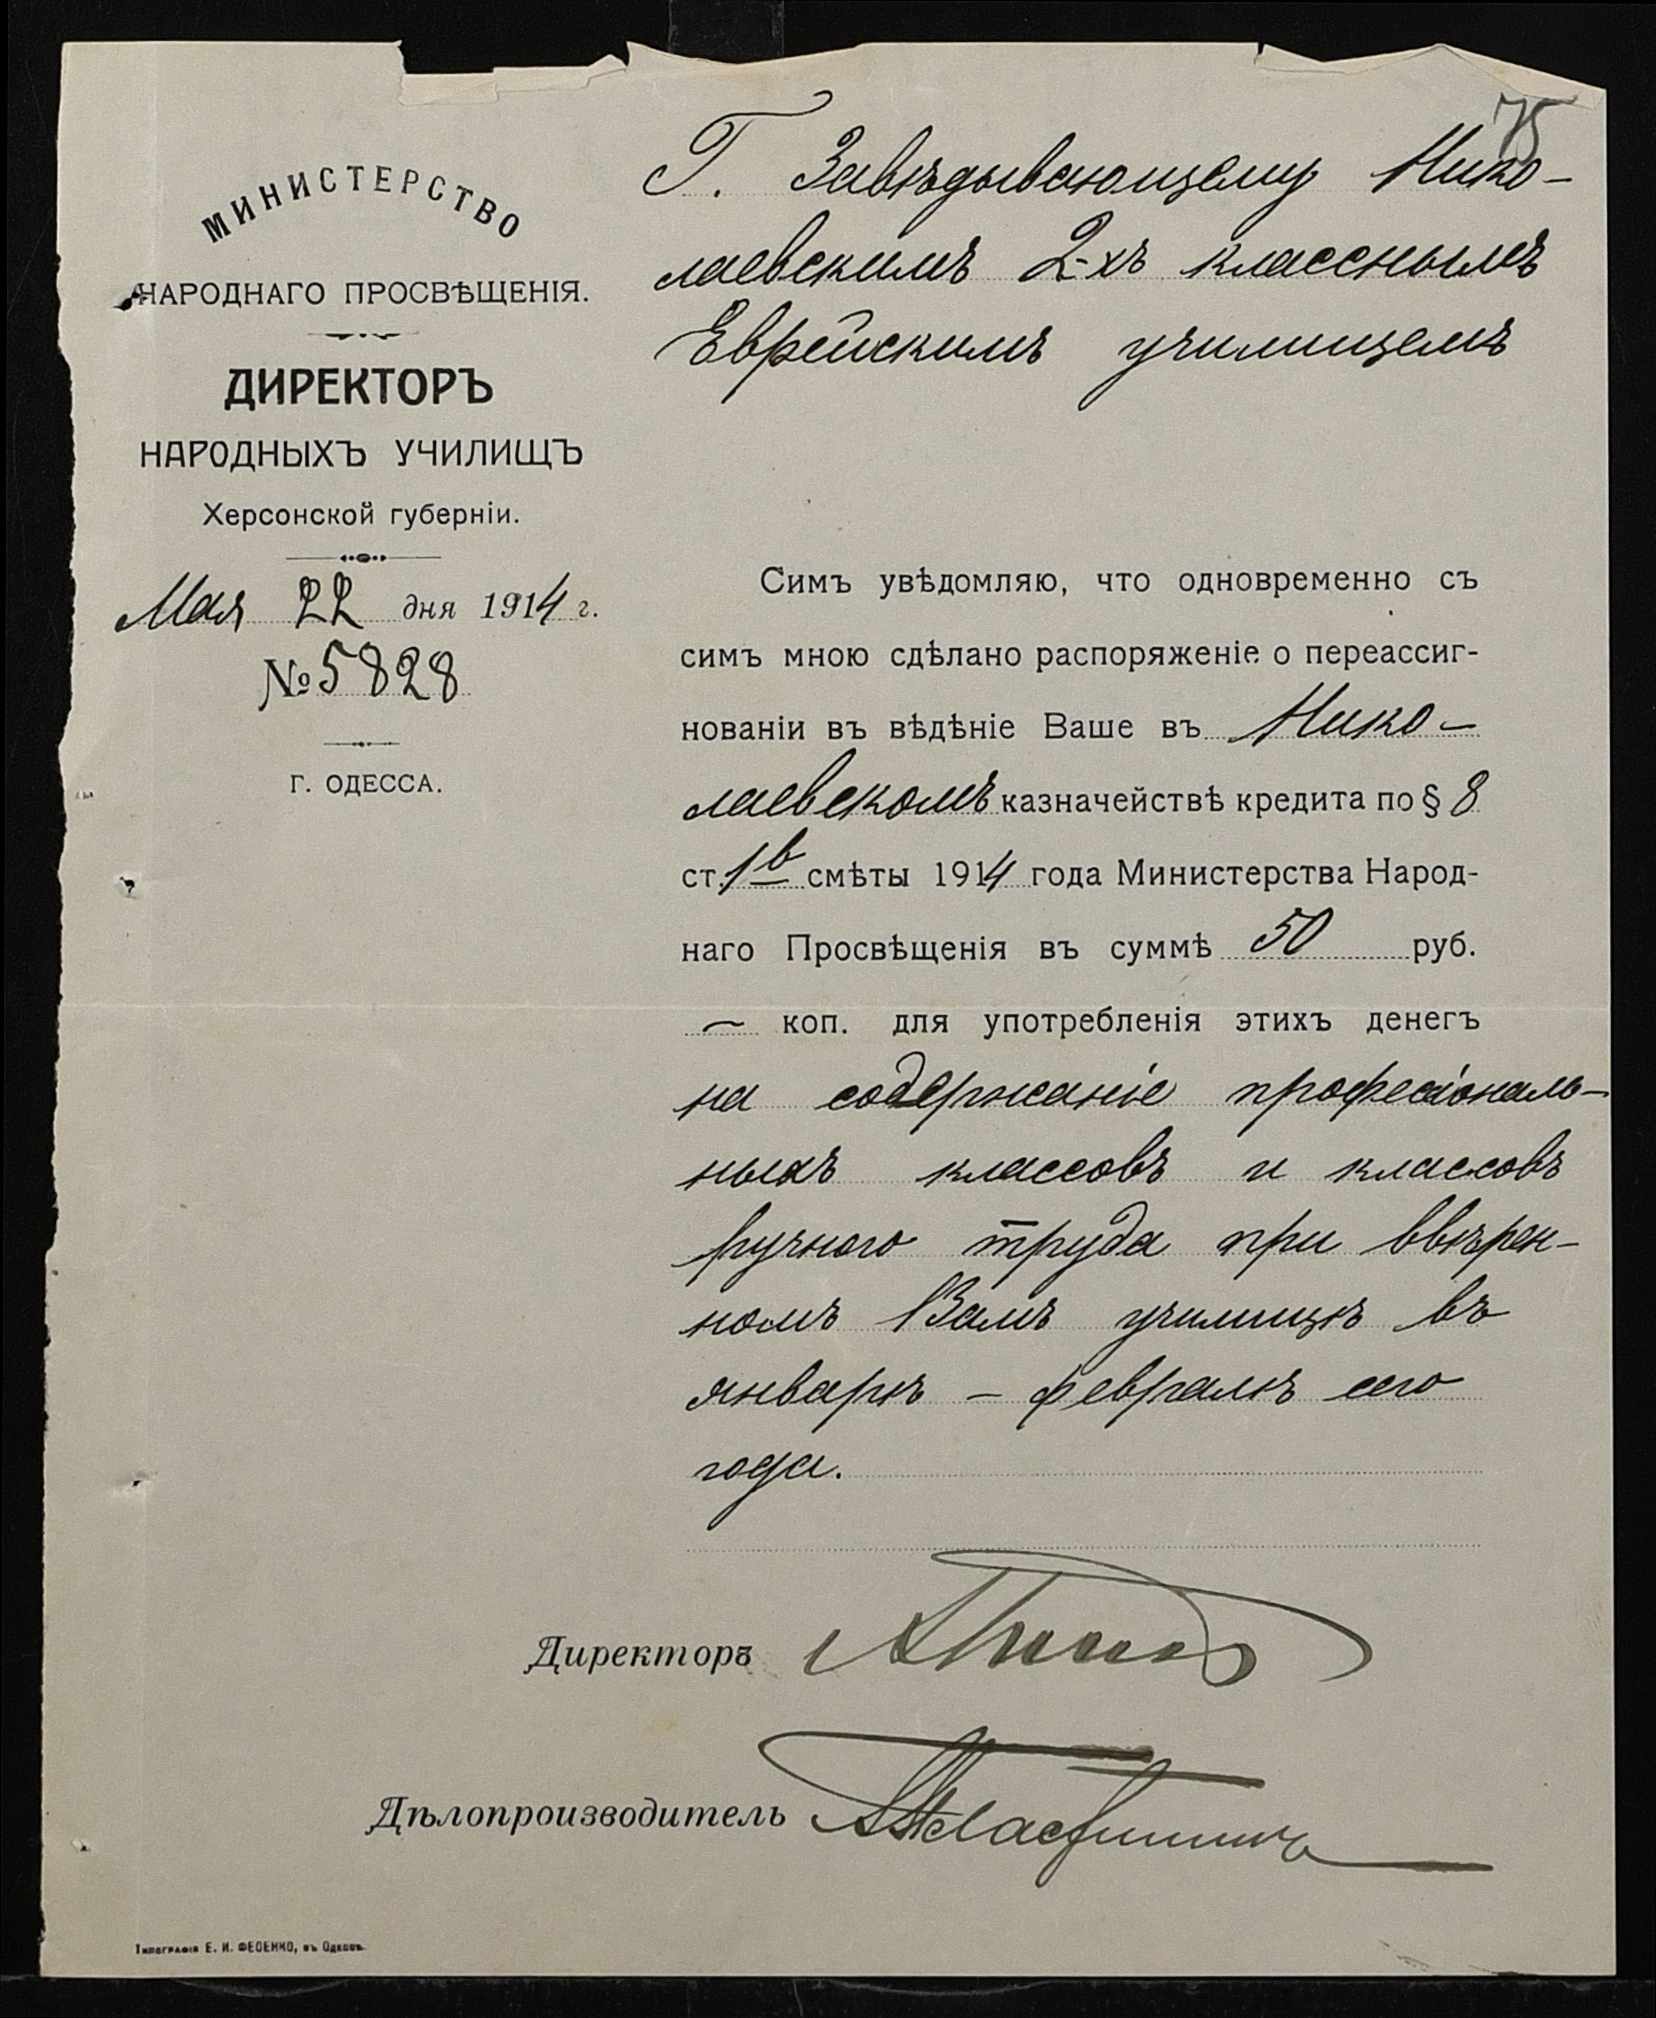 75
МИНИСТЕРСТВО
НАРОДНАГО ПРОСВѢЩЕНІЯ.
ДИРЕКТОРЪ
НАРОДНЫХЪ УЧИЛИЩЪ
Херсонской губерніи.
Мая 22 дня 1914 г.
№ 5828
Г. ОДЕССА.
Г. Завѣдывающему Нико-
лаевскимъ 2-хъ класснымъ
Еврейскимъ училищемъ
Симъ увѣдомляю, что одновременно съ
симъ мною сдѣлано распоряженіе о переассиг-
нованіи въ вѣдѣніе Ваше въ Нико-
лаевскомъ казначействѣ кредита по § 8
ст. 1в смѣты 1914 года Министерства Народ-
наго Просвѣщенія въ суммѣ 50 руб.
— коп. для употребленія этихъ денегъ
на содержаніе професіональ-
ныхъ классовъ и классовъ
ручного труда при ввѣрен-
номъ Вамъ училищѣ въ
январѣ – февралѣ сего
года.
Директоръ
Дѣлопроизводитель
Типографія Е. И. ФЕСЕНКО, въ Одессѣ.